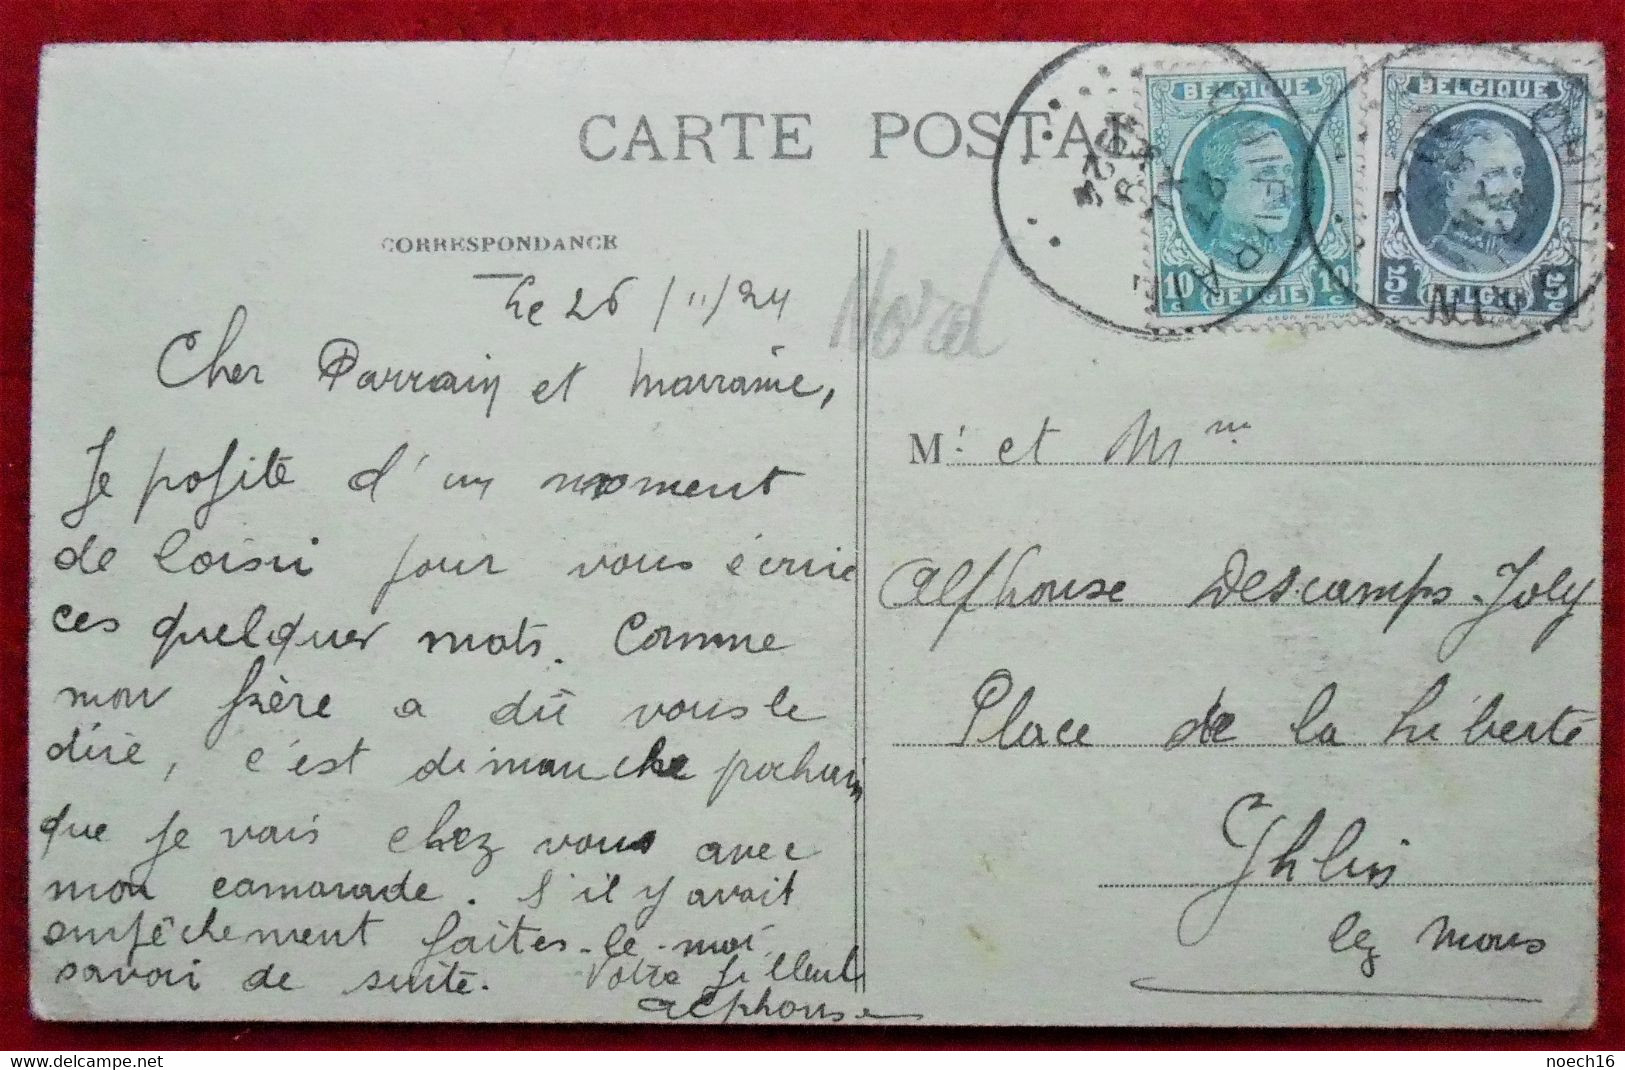 CARTE POSTAL
CORRESPONDANCE
Le 26/11/24
Cher Parrain et Marraine,
Je profite d'un moment
de loisir pour vous écrire
ces quelques mots. Comme
mon frère a dû vous le
dire, c'est dimanche prochain
que je vais chez vous avec
mon camarade. S'il y avait
empêchement faites-le-moi
savoir de suite. Votre filleul
Alphonse
Nord
BELGIQUE
10 c BELGIË 10 c
BELGIQUE
5 c BELGIË 5 c
Mr. et Mme
Alphonse Descamps-Joly
Place de la Liberté
Ghlin
lez Mons
noech16